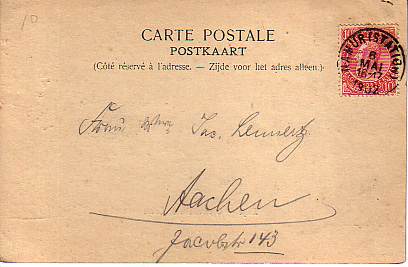 10
CARTE POSTALE
POSTKAART
(Côté réservé à l'adresse. — Zijde voor het adres alleen.)
NAMUR (STATION)
6
MAI
16-17
1902
Frau Jac. Lennertz
Aachen
Jacobstr 143